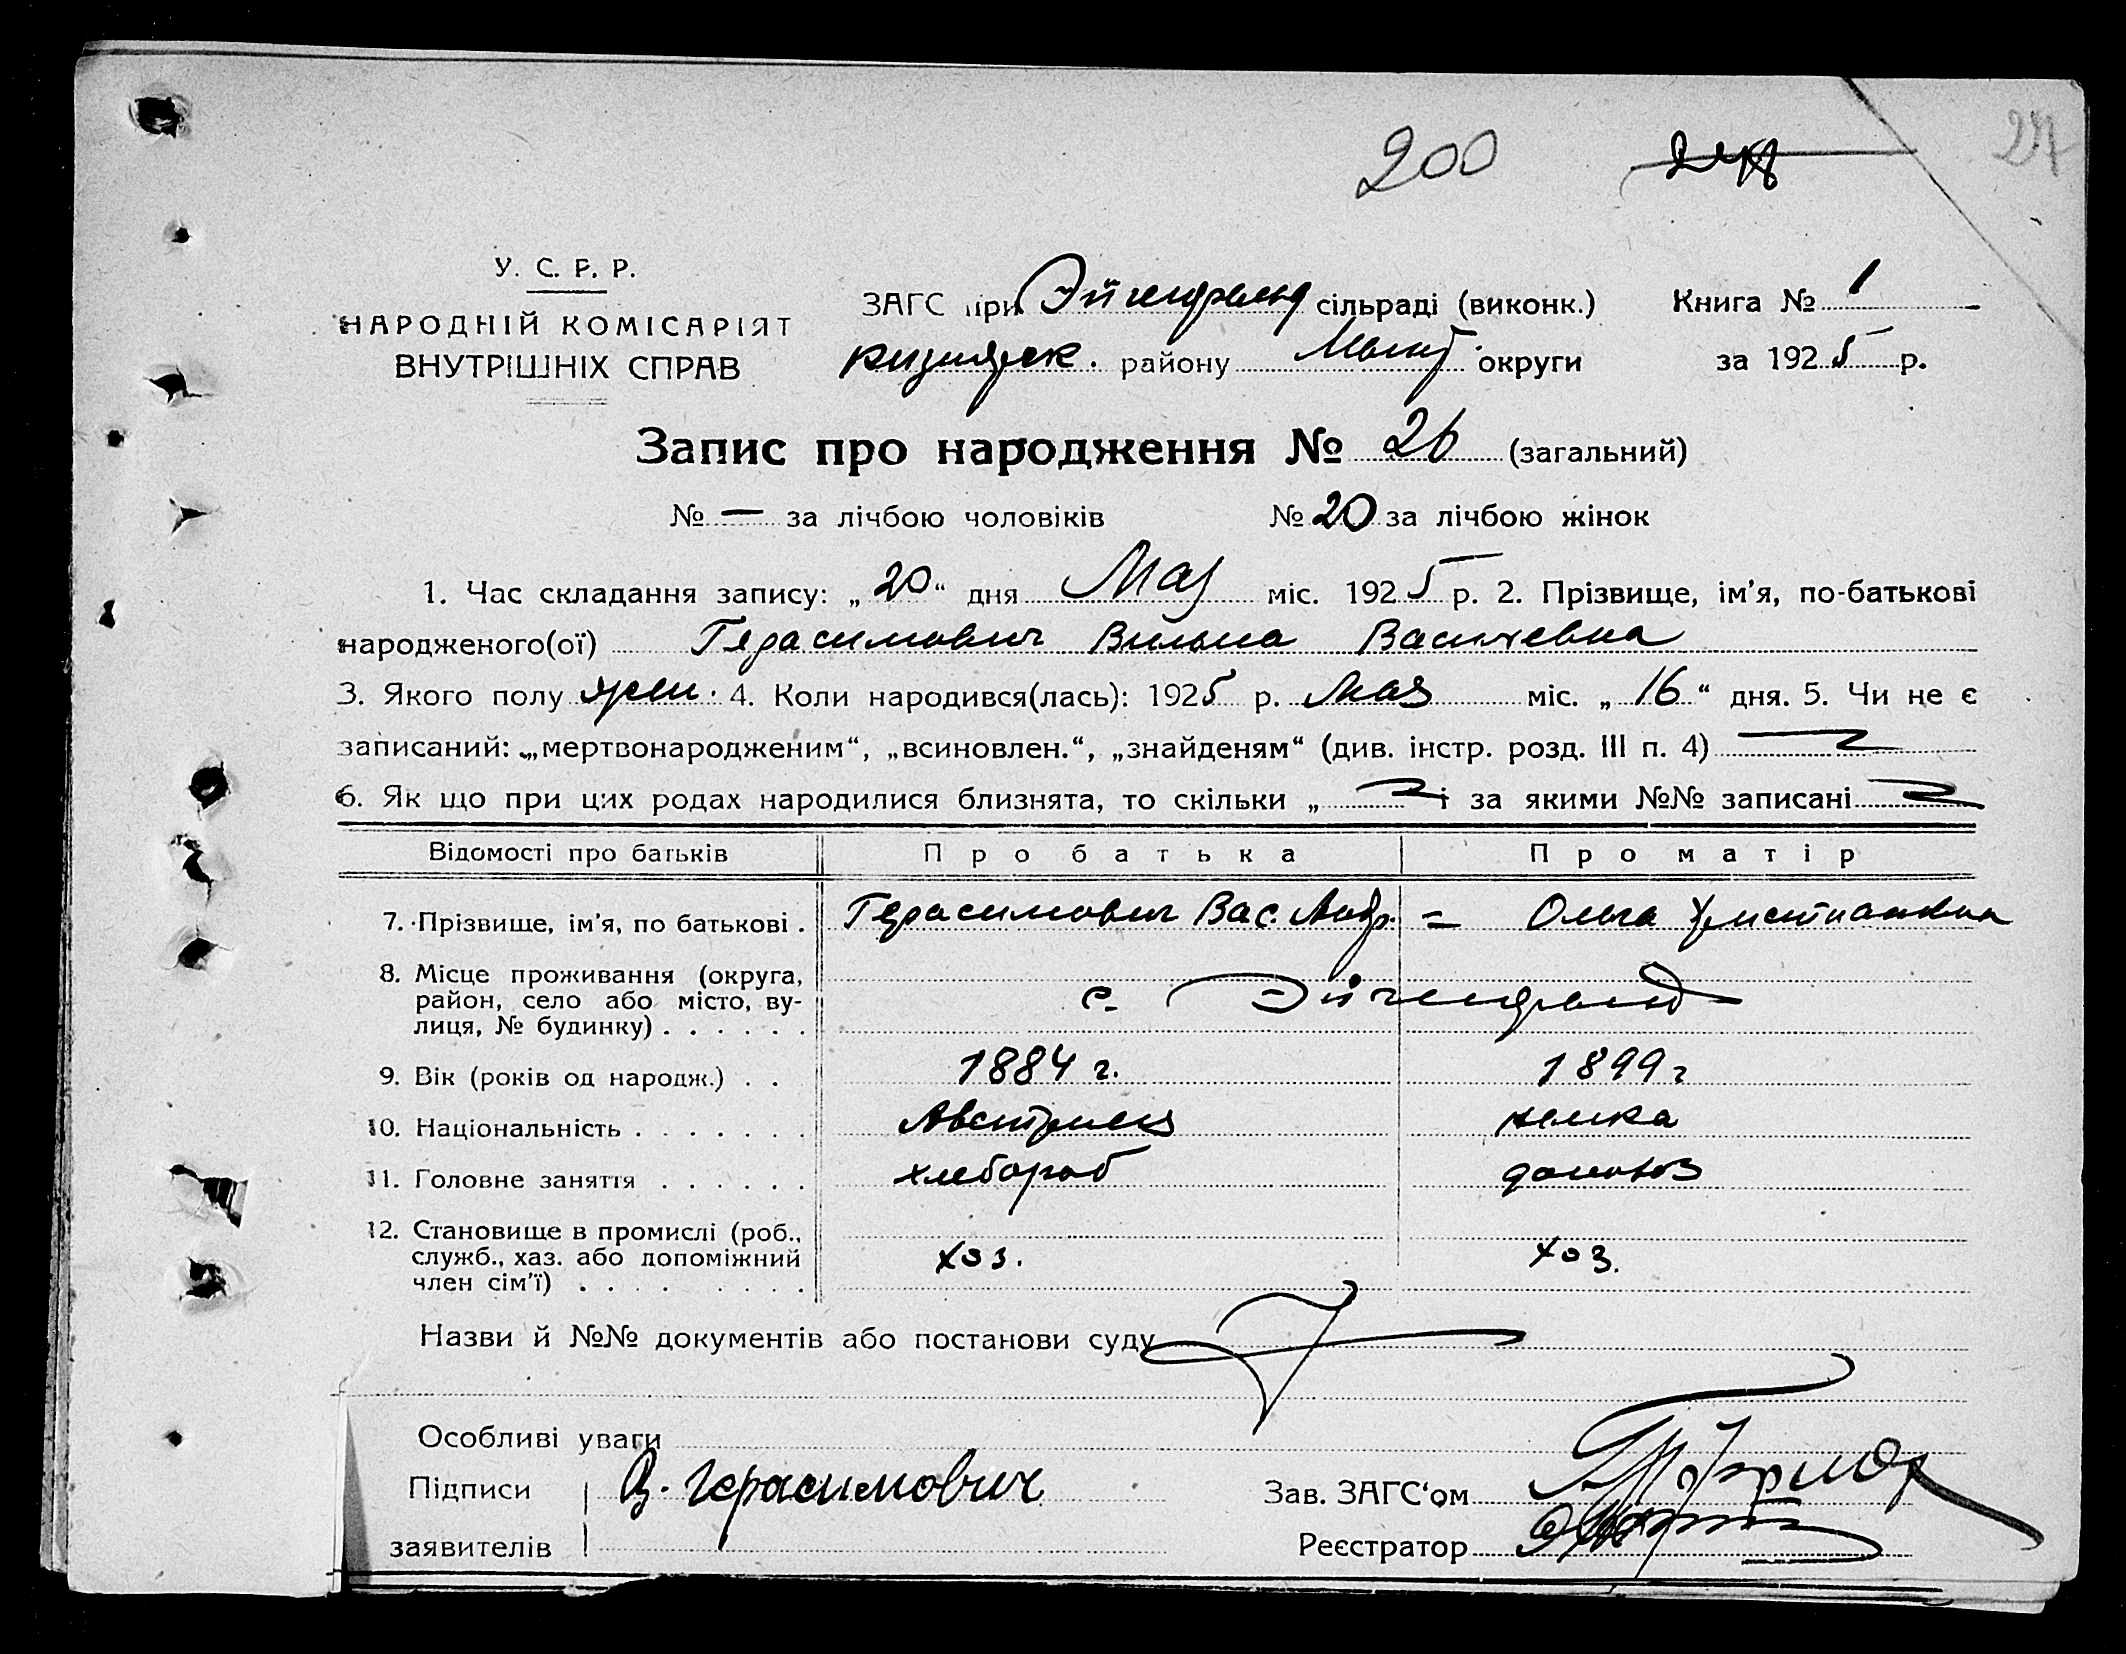 200
27
У. С. Р. Р.
НАРОДНІЙ КОМІСАРІЯТ
ВНУТРІШНІХ СПРАВ
ЗАГС при Эйгенфельд сільраді (виконк.) Книга № 1
району округи за 1925 р.
Запис про народження № 26 (загальний)
№ — за лічбою чоловіків № 20 за лічбою жінок
1. Час складання запису: „20“ дня Мая міс. 1925 р. 2. Прізвище, ім'я, по-батькові
народженого(ої) Герасимович Вильма Васильевна
3. Якого полу жен. 4. Коли народився(лась): 1925 р. Мая міс. „16“ дня. 5. Чи не є
записаний: „мертвонародженим“, „всиновлен.“, „знайденям“ (див. інстр. розд. III п. 4)
6. Як що при цих родах народилися близнята, то скільки „ і за якими №№ записані
Відомості про батьків Про батька Про матір
7. Прізвище, ім'я, по батькові . Герасимович Вас. Андр. = Ольга Христиановна
8. Місце проживання (округа,
район, село або місто, ву-
лиця, № будинку) . . . . . . с. Эйгенфельд
9. Вік (років од народж.) . . 1884 г. 1899 г
10. Національність . . . . . . . Австриец немка
11. Головне заняття . . . . . . хлебороб домохоз
12. Становище в промислі (роб.,
служб., хаз. або допоміжний
член сім'ї) . . . . . . . . хоз. хоз.
Назви й №№ документів або постанови суду
Особливі уваги
Підписи В. Герасимович Зав. ЗАГС'ом
заявителів Реєстратор